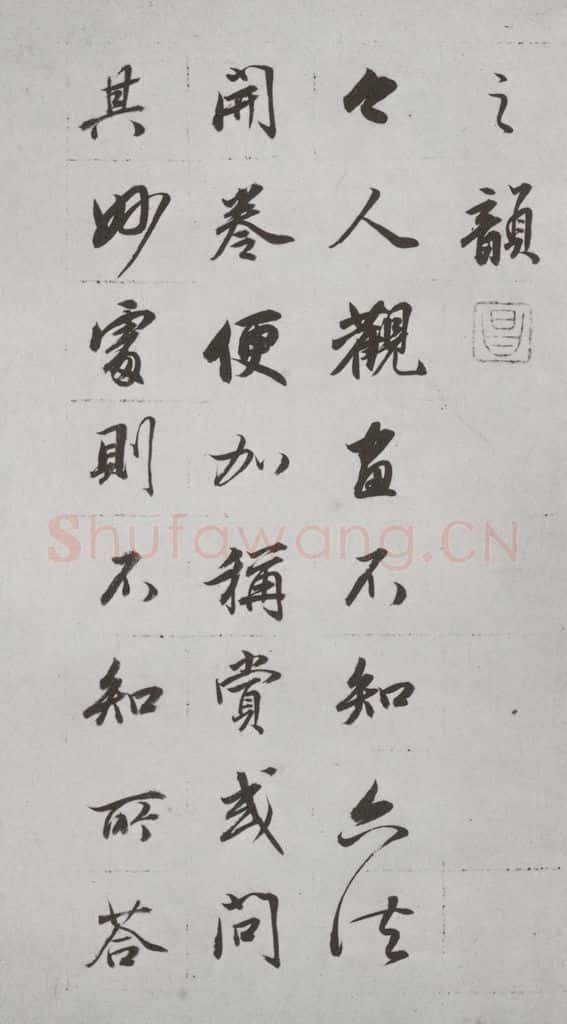 之韻
昌
今人觀畫不知六法
開卷便加稱賞或問
其妙處則不知所答
Shufawang.CN